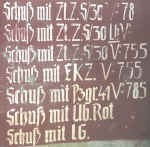 Schuß mit Zt.Z.S/30 V=78
Schuß mit Zt.Z.S/30 V=
Schuß mit Zt.Z.S/30 V=755
Schuß mit E.K.Z. V=755
Schuß mit Pzgr.41 V=785
Schuß mit Üb.Rot
Schuß mit L.G.